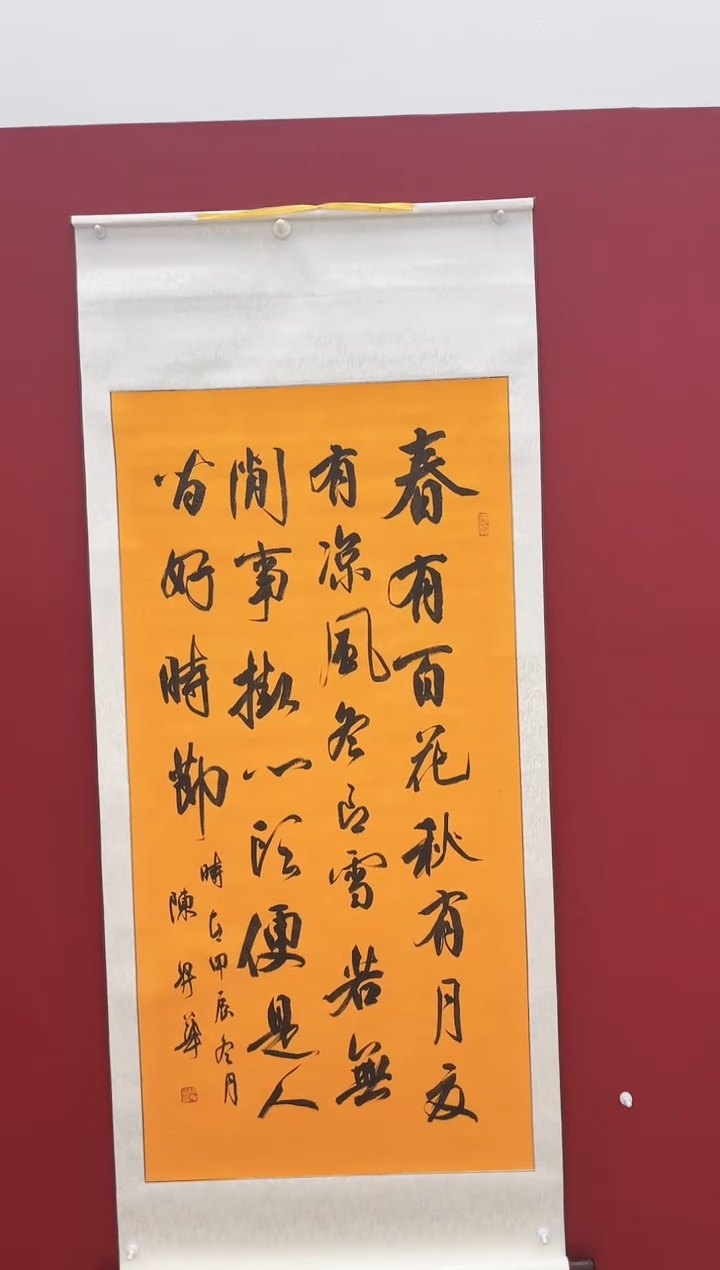 春有百花秋有月夏
有涼風冬有雪若無
閒事掛心頭便是人
間好時節
時在甲辰冬月
陳 華